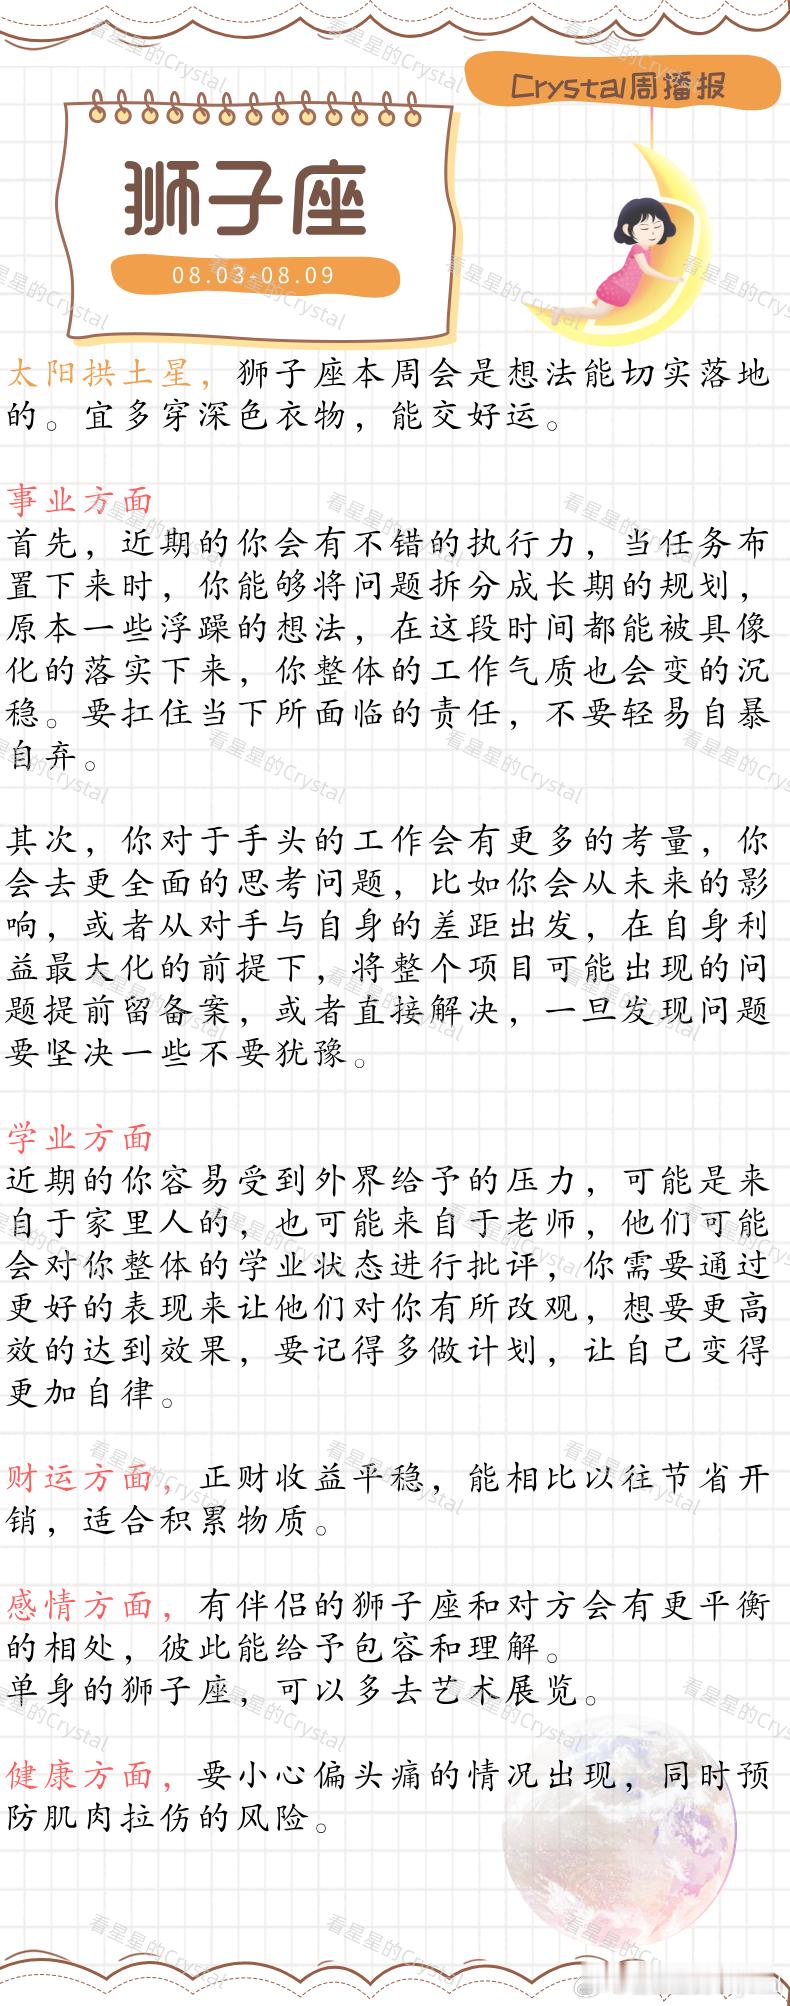 Crystal周播报
狮子座
08.03-08.09
太阳拱土星，狮子座本周会是想法能切实落地
的。宜多穿深色衣物，能交好运。
事业方面
首先，近期的你会有不错的执行力，当任务布
置下来时，你能够将问题拆分成长期的规划，
原本一些浮躁的想法，在这段时间都能被具像
化的落实下来，你整体的工作气质也会变的沉
稳。要扛住当下所面临的责任，不要轻易自暴
自弃。
其次，你对于手头的工作会有更多的考量，你
会去更全面的思考问题，比如你会从未来的影
响，或者从对手与自身的差距出发，在自身利
益最大化的前提下，将整个项目可能出现的问
题提前留备案，或者直接解决，一旦发现问题
要坚决一些不要犹豫。
学业方面
近期的你容易受到外界给予的压力，可能是来
自于家里人的，也可能来自于老师，他们可能
会对你整体的学业状态进行批评，你需要通过
更好的表现来让他们对你有所改观，想要更高
效的达到效果，要记得多做计划，让自己变得
更加自律。
财运方面，正财收益平稳，能相比以往节省开
销，适合积累物质。
感情方面，有伴侣的狮子座和对方会有更平衡
的相处，彼此能给予包容和理解。
单身的狮子座，可以多去艺术展览。
健康方面，要小心偏头痛的情况出现，同时预
防肌肉拉伤的风险。
看星星的Crystal